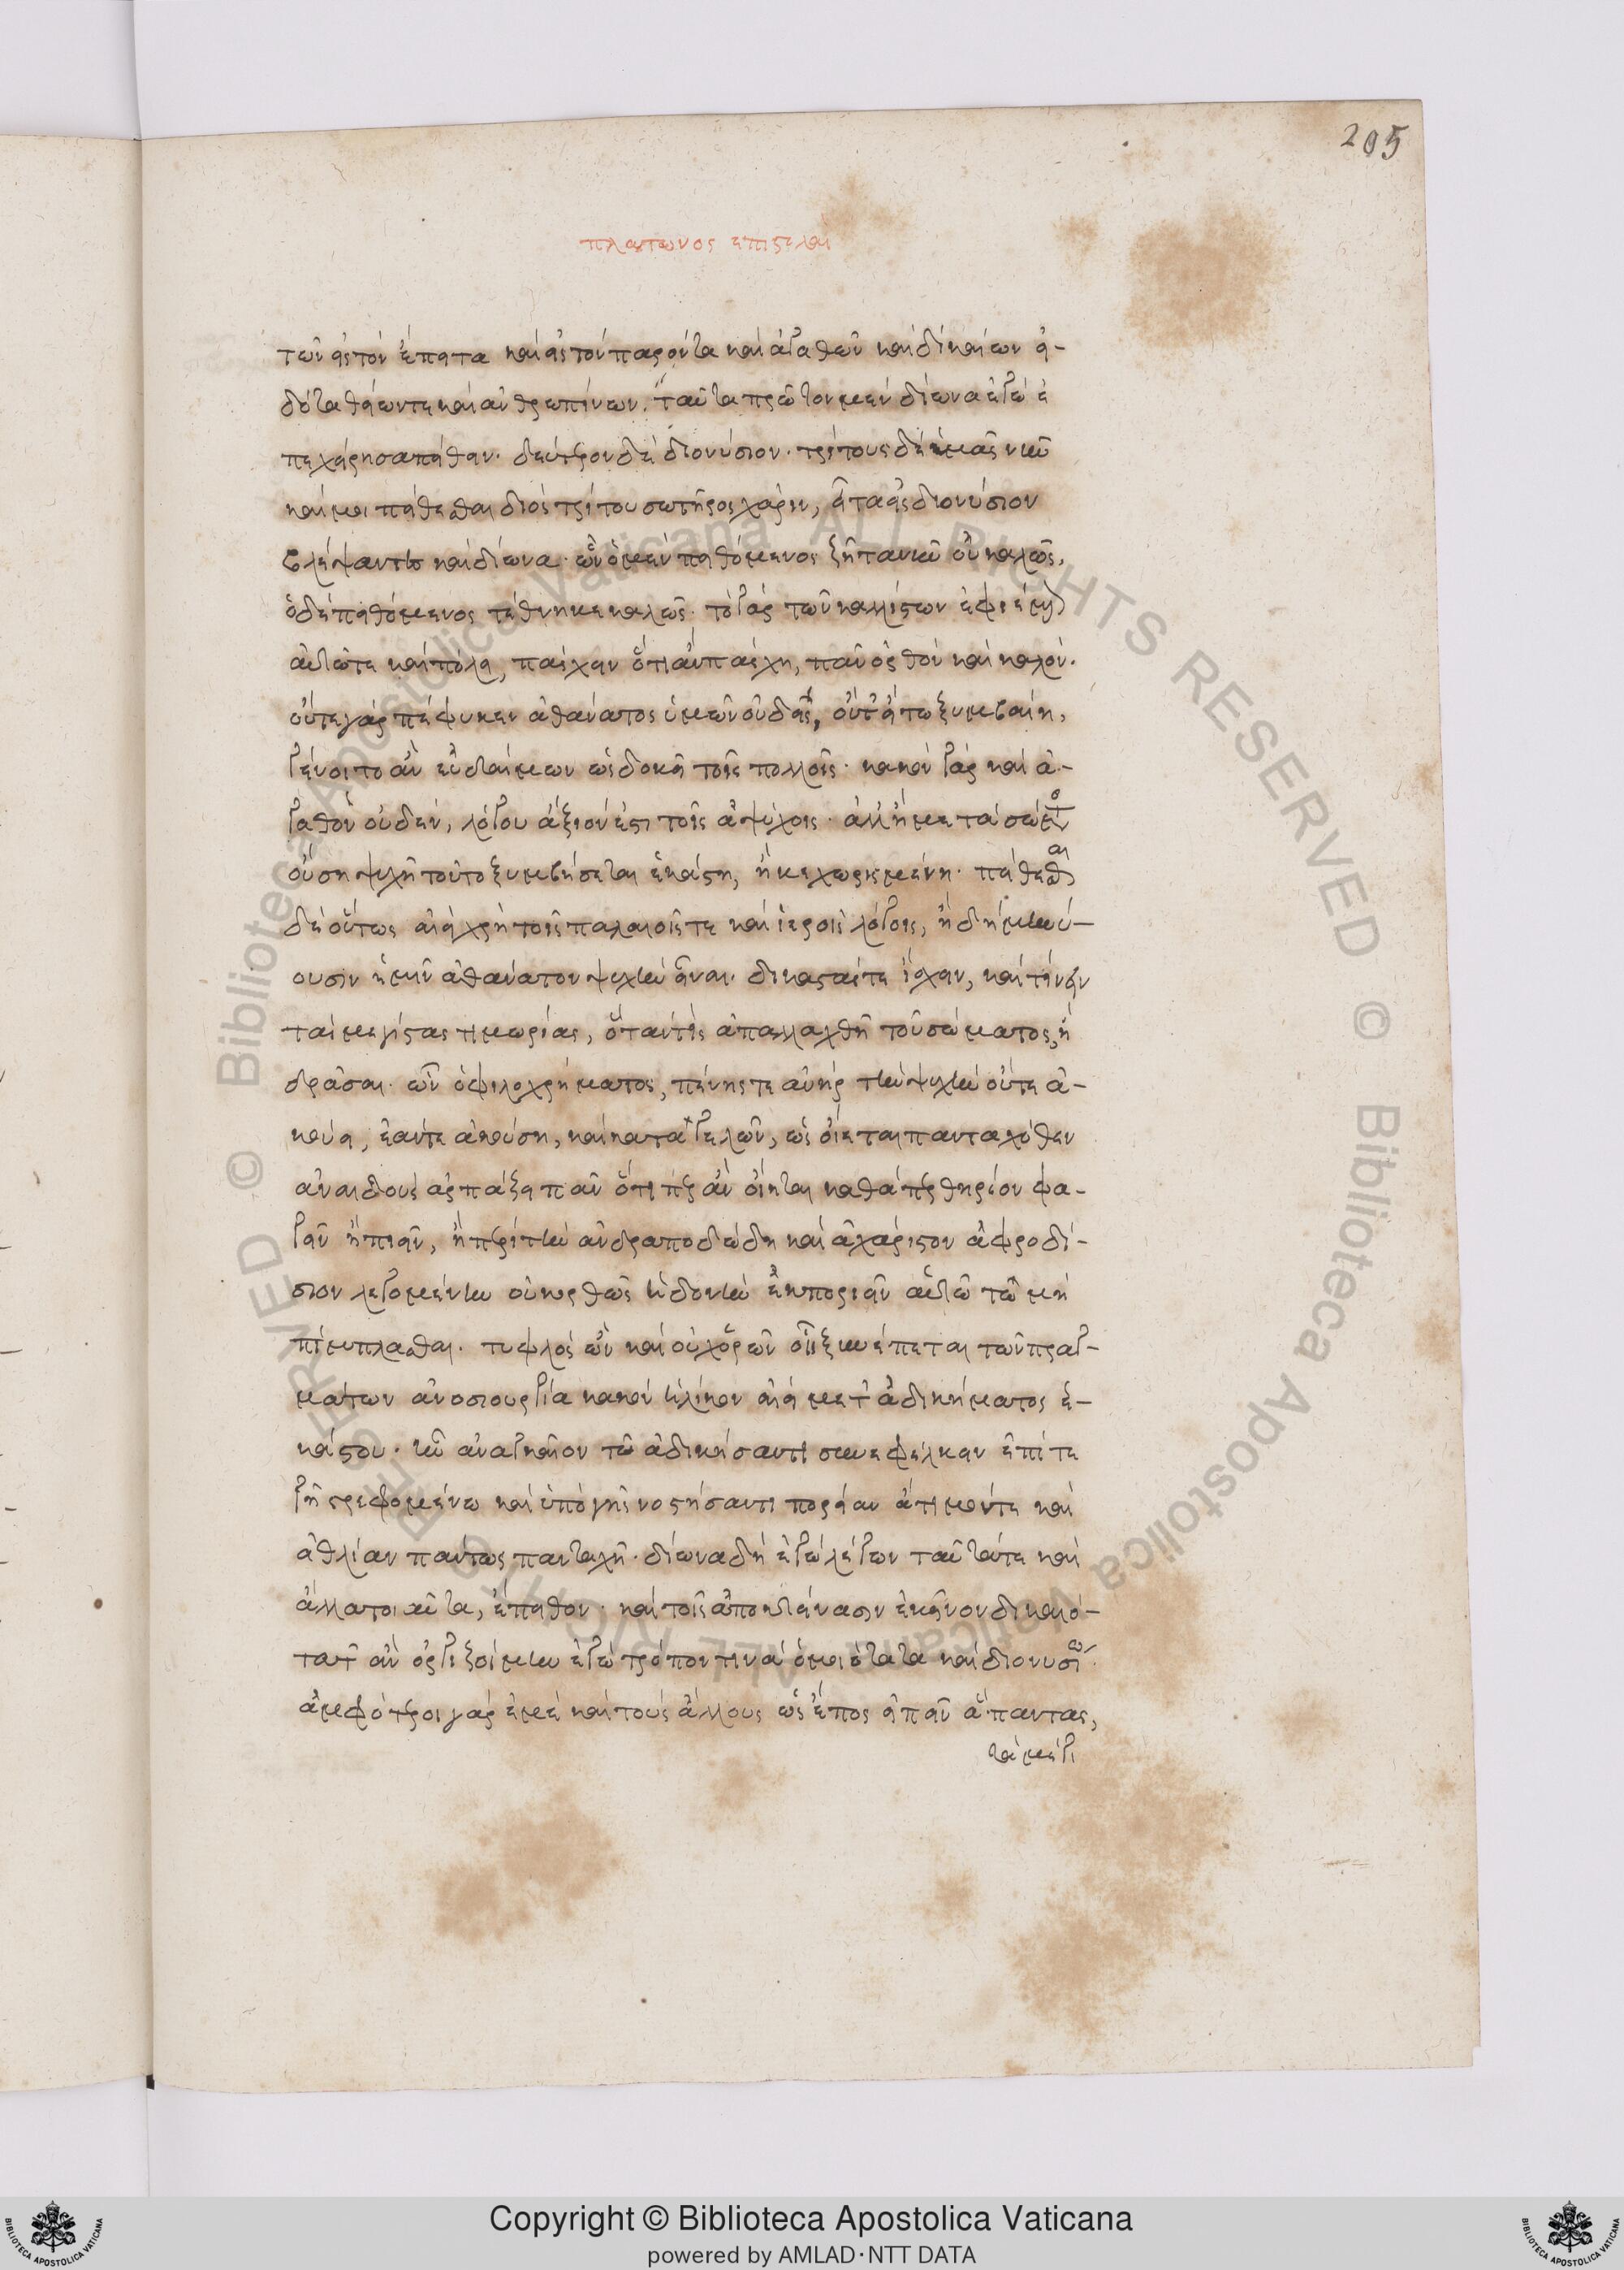 205
πλατωνος επιστολαι
τῶν εἰς τὸν ἔπειτα καὶ εἰς τὸν παρόντα καὶ ἀγαθῶν καὶ δικαίων εἰ-
δότα θείων τε καὶ ἀνθρωπίνων. ταῦτα πρῶτον μὲν δίωνα ἐγὼ ἐ
πεχείρησα πείθειν· δεύτερον δὲ διονύσιον· τρίτους δὲ ὑμᾶς νῦν
καί μοι πείθεσθαι διὸς τρίτου σωτῆρος χάριν, εἶτα εἰς διονύσιον
βλέψαντες καὶ δίωνα· ὧν ὁ μὲν πειθόμενος ζῇ τανῦν οὐ καλῶς,
ὁ δὲ πειθόμενος τέθνηκε καλῶς· τὸ γὰρ τῶν καλλίστων ἐφιέμενον
αὑτῶ τε καὶ πόλει, πάσχειν ὅτι ἂν πάσχη, πᾶν ὀρθὸν καὶ καλόν.
οὔτε γὰρ πέφυκεν ἀθάνατος ἡμῶν οὐδείς, οὔτ' εἴ τω ξυμβαίη,
γένοιτο ἂν εὐδαίμων ὡς δοκεῖ τοῖς πολλοῖς· κακὸν γὰρ καὶ ἀ-
γαθὸν οὐδὲν, λόγου ἄξιόν ἐστι τοῖς ἀψύχοις· ἀλλ' ἢ μετὰ σώματος
οὔση ψυχῆ τοῦτο ξυμβήσεται ἑκάστη, ἢ κεχωρισμένη· πείθεσθαι
δὲ οὕτως αἰεὶ χρὴ τοῖς παλαιοῖς τε καὶ ἱεροῖς λόγοις, ἣ δὴ μηνύ-
ουσιν ἡμῖν ἀθάνατον ψυχὴν εἶναι· δικαστάς τε ἴσχειν, καὶ τίνειν
τὰς μεγίστας τιμωρίας, ὅταν τις ἀπαλλαχθῆ τοῦ σώματος, ἢ
δρᾶσαι· ὧν ὁ φιλοχρήματος, πένης τε ἀνὴρ τὴν ψυχὴν οὔτε ἀ-
κούει, ἐάντε ἀκούση, καὶ καταγελῶν, ὡς οἴεται πανταχόθεν
ἀναιδοῦς ἁρπάξει πᾶν ὅτι περ ἂν οἴηται καθάπερ θηρίον φα-
γεῖν ἢ πιεῖν, ἢ περὶ τὴν ἀνδραποδώδη καὶ ἀχάριστον ἀφροδί-
σιον λεγομένην οὐκ ὀρθῶς ἡδονὴν ἐκποριεῖν αὑτῶ τῶ μὴ
πίμπλασθαι· τυφλὸς ὢν καὶ οὐχ ὁρῶν οἷς ξυνέπεται τῶν πραγ-
μάτων ἀνοσιουργία κακὸν ἡλίκον αἰεὶ μετ' ἀδικήματος ἑ-
κάστου· ἣν ἀναγκαῖον τῶ ἀδικήσαντι συνεφέλκειν ἐπί τε
γῆ στρεφομένω καὶ ὑπὸ γῆς νοστήσαντι πορείαν ἄτιμόν τε καὶ
ἀθλίαν πάντως πανταχῆ· δίωνα δὴ ἐγὼ λέγων ταῦτά τε καὶ
ἄλλα τοιαῦτα, ἔπειθον· καὶ τοῖς ἀποκτείνασιν ἐκεῖνον δικαιό-
τατ' ἂν ὀργιζοίμην ἐγὼ τρόπον τινὰ ὁμοιότατα καὶ διονυσίω·
ἀμφότεροι γὰρ ἐμὲ καὶ τοὺς ἄλλους ὡς ἔπος εἰπεῖν ἅπαντας,
τὰ μέγι